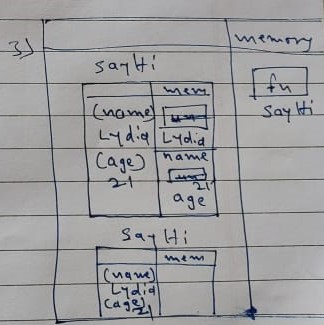 3)
memory
fn
sayHi
sayHi
mem
(name)
Lydia Lydia
(age) name
21 21
age
sayHi
mem
(name)
Lydia
(age)
21